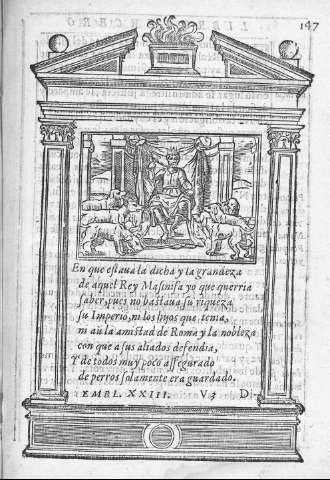 147
En que estaua la dicha y la grandeza
de aquel Rey Masinisa yo que querria
saber, pues no bastaua su riqueza
su Imperio, ni los hijos que tenia,
ni aũ la amistad de Roma y la nobleza
con que a sus aliados defendia,
Y de todos muy poco assegurado
de perros solamente era guardado.
EMBL. XXIII. V3 D